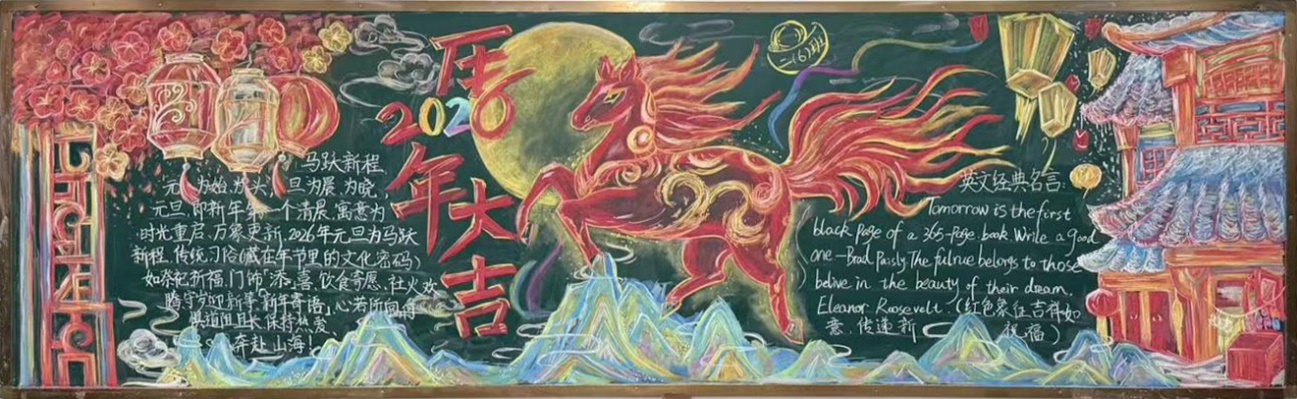 马年大吉
2026
二(6)班
马跃新程
元,为始,为头,旦为晨,为晓,
元旦,即新年第一个清晨,寓意为
时光重启,万象更新,2026年元旦为马跃
新程,传统习俗(藏在年节里的文化密码)
如祭祀祈福,门饰添喜,饮食寄愿,社火欢
腾守岁迎新等,新年寄语,心若所向,何
惧道阻且长,保持热爱
奔赴山海!
英文经典名言:
Tomorrow is the first
black page of a 365-page book. Write a good
one—Brad Paisly. The fulnue belongs to those
belive in the beauty of their dream.
Eleanor Roosevelt. (红色象征吉祥如
意,传递新 祝福)